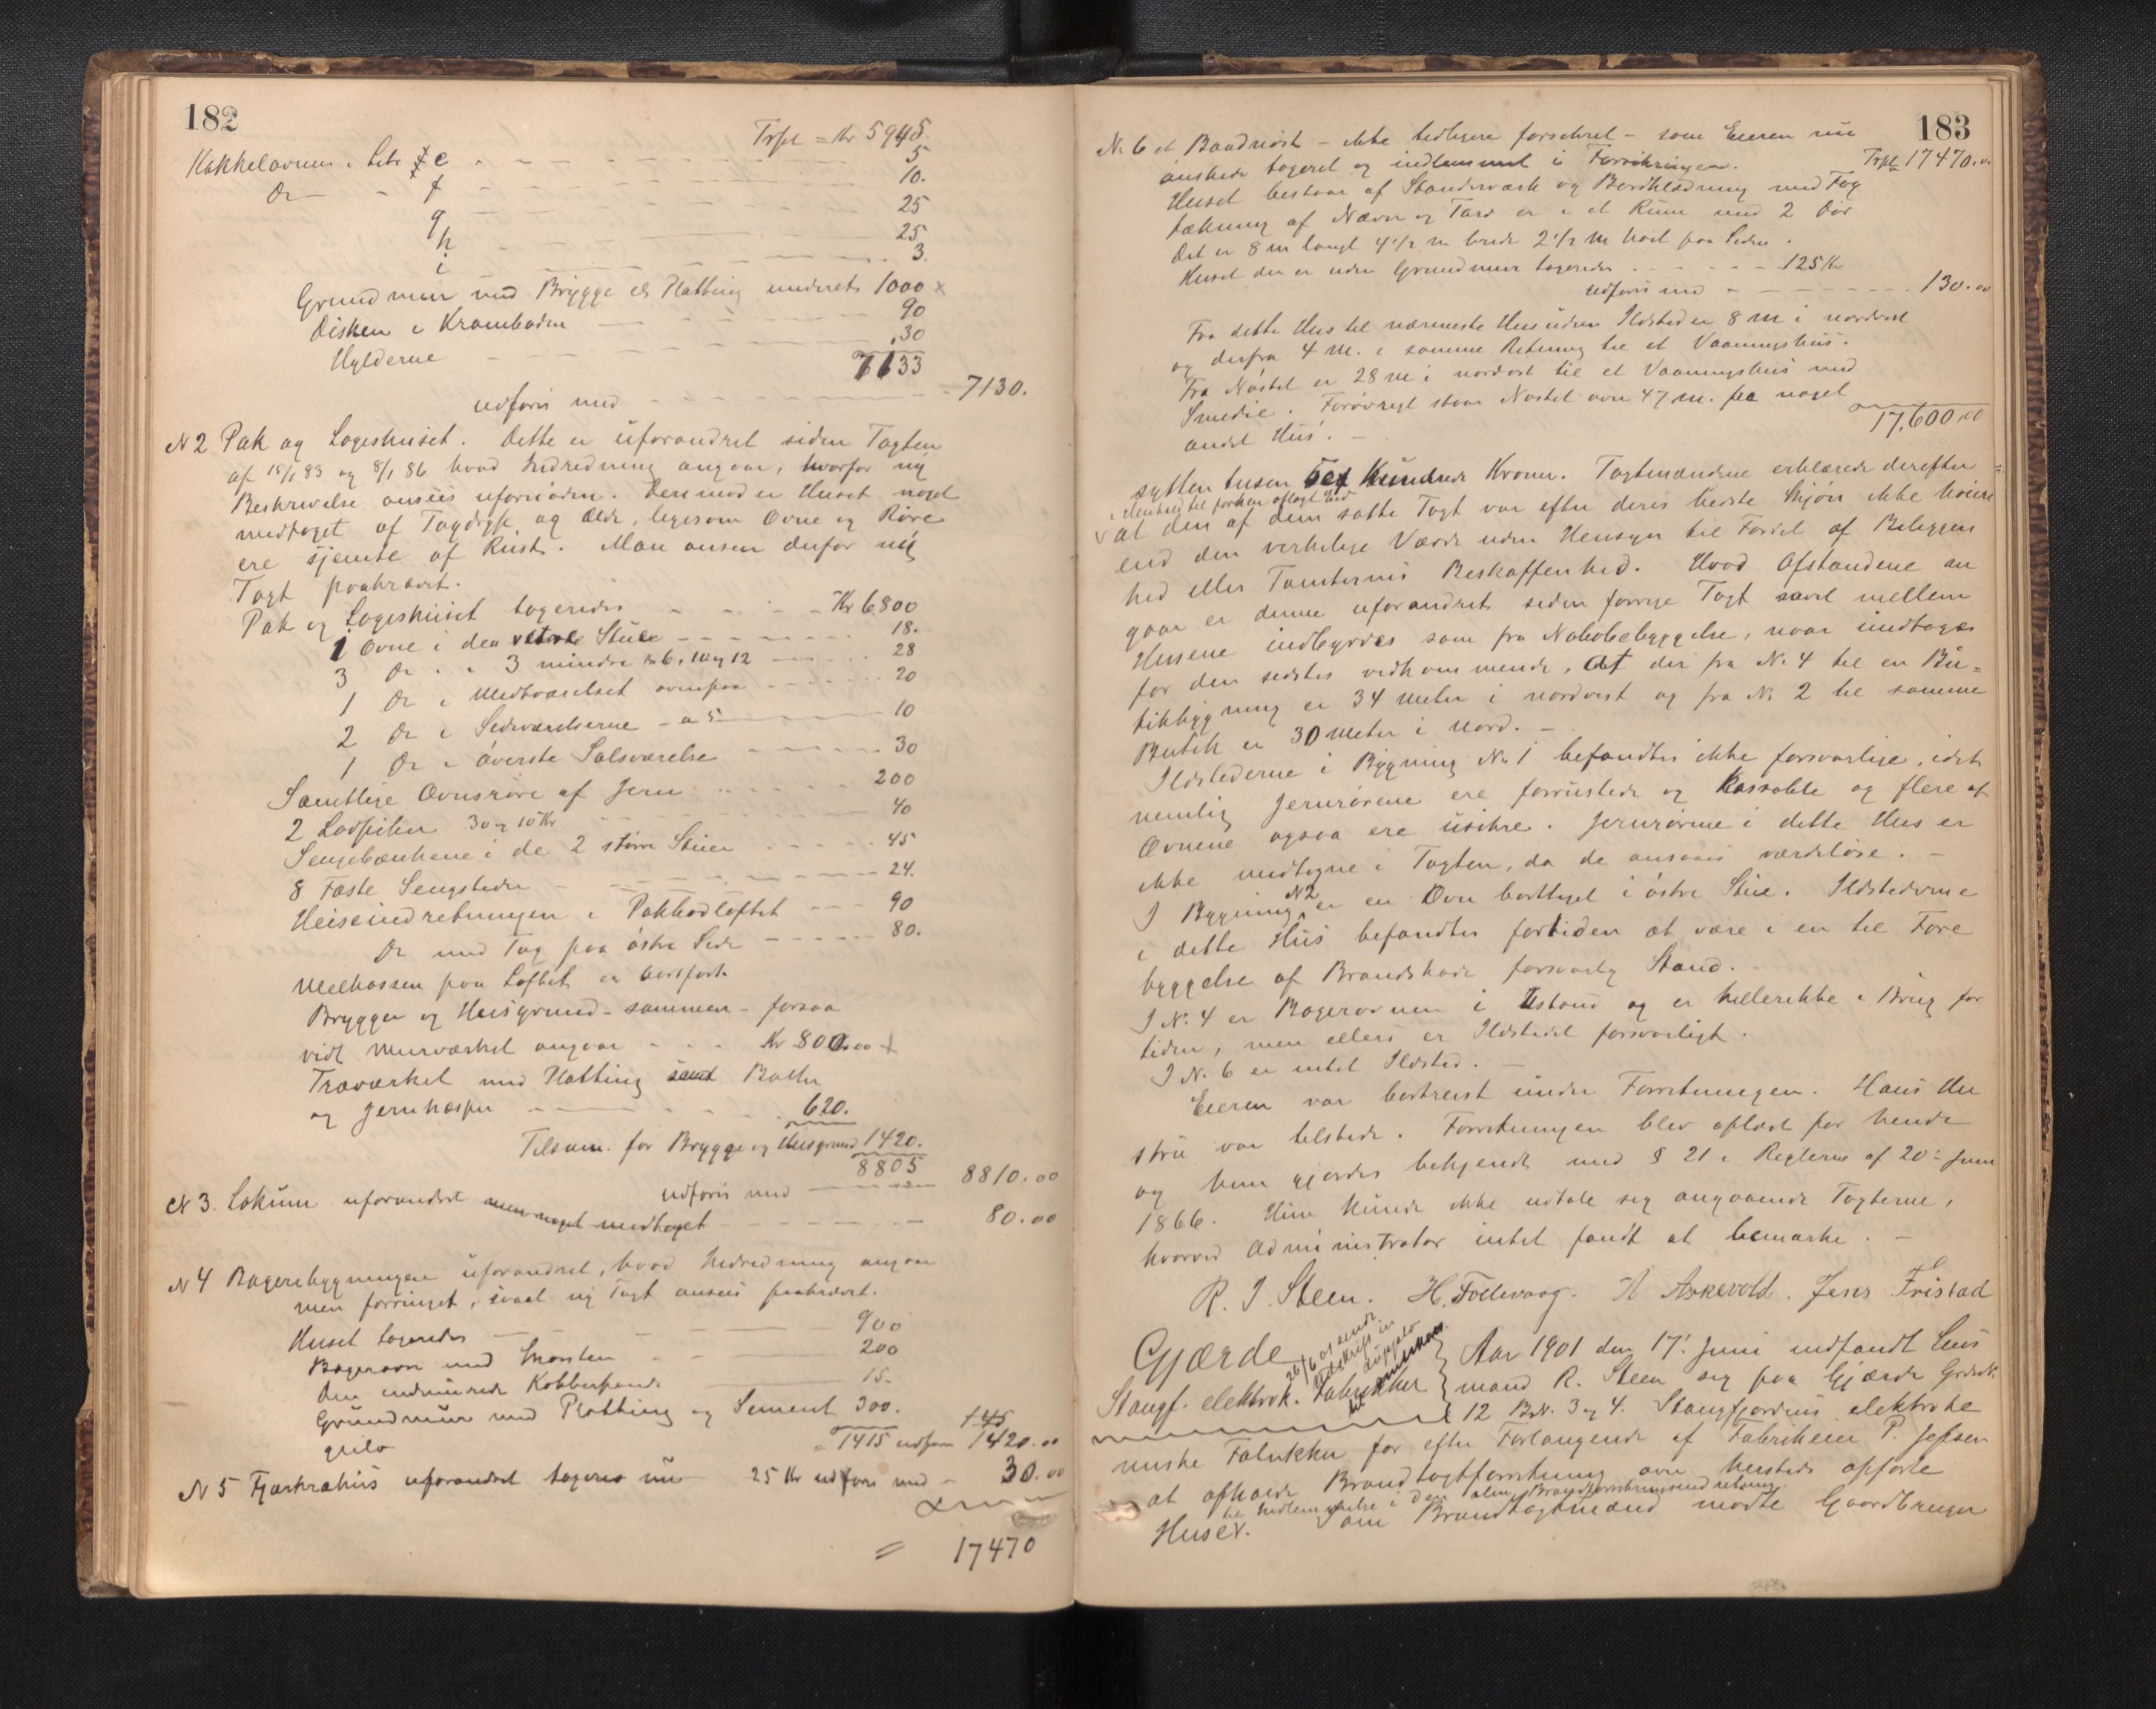 182
Trspt = Kr 5945.
Kakkelovnen i Litr e - - - - 5
Do - - f - - - - 10.
g - - - - 25
h - - - - 25
i - - - - 3.
Grundmur med Brygge & Platting underet 1000 x
Disken i Kramboden - - - 90
Hylderne - - - 30
7133
udføris med - - - 7130.
N 2 Pak og Logishuset. Dette er uforandret siden Taxten
af 15/1 83 og 8/1 86 hvad Indredning angaar, hvorfor ny
Beskrivelse ansees ufornöden. Derimod er Huset noget
medtaget af Tagdryp og Ælde, ligesom Ovne og Röre
ere tjente af Rust. Man anser derfor ny
Taxt paakrævet.
Pak og Logishuset taxeredes - - - Kr 6800
1 Ovne i den vestre Stue - - - 18.
3 Do " " 3 mindre No 6, 10 og 12 - - - 28
1 Do i Midtværelset ovenpaa - - - 20
2 Do i Sideværelserne - a 5 - 10
1 Do i överste Salsværelse - - - 30
Samtlige Ovnsröre af Jern - - - 200
2 Lodpiber 30 og 10 Kr - - - 40
Sengebænkene i de 2 större Stuer - - - 45
8 Faste Sengesteder - - - 24.
Heiseindretningen i Pakbodloftet - - - 90
Do med Tag paa östre Side - - - 80.
Melkassen paa Loftet er bortfört
Bryggen og Husgrund - sammen - forsaa
vidt Murværket angaar - - - Kr 800.00 +
Træværket med Platting samt Bolter
og Jernhæsper - - - 620.
Tilsam. for Brygge og Husgrund 1420.
8805
udføris med - - - 8810.00
N 3. Lokum uforandret men noget medtaget - - - 80.00
N 4 Bageribygningen uforandret, hvad Indredning angaar
men forringet, saaat ny Taxt ansees paakrævet.
Huset taxeredes - - - 900
Bagerovn med Skorsten - - - 200
Den indmurede Kobberpande - - - 15.
Grundmur med Platting og Sement 300.
= 1415 udføres 1420.00
N 5 Fjærkræhus uforandret taxeres nu 25 Kr udføris med - 30.00
= 17470
183
N. 6 et Baadnöst - ikke tidligere forsikret - som Eieren nu
Trspt 17470.00
önskede taxeret og indlemmet i Forsikringen.
Huset bestaar af Standerværk og Bordklædning med Tag
tækning af Næver og Tarv er i et Rum med 2 Dör
Det er 8 m langt 4 1/2 m bredt 2 1/2 m höit paa Siden.
Huset der er uden Grundmur taxeredes - - - 125 Kr
udføris med - - - 130.00
Fra dette Hus til nærmeste Hus uden Ildsted er 8 m i nordvest
og derfra 4 m. i samme Retning til et Vaaningshus.
Fra Nöstet er 28 m i nordost til et Vaaningshus med
Smedie. Forövrigt staar Nöstet over 47 m. fra noget
andet Hus. -
17,600,00
sytten tusen sex hundrede Kroner. Taxtmændene erklærede derefter
i Henhold til forhen aflagt Eed
v at den af dem satte Taxt var efter deris bedste Skjön ikke höiere
end den virkelige Værdi uden Hensyn til Fordel af Beliggen
hed eller Tomternis Beskaffenhed. Hvad Afstandene an
gaar er denne uforandret siden forrige Taxt saavel mellem
Husene indbyrdes som fra Nabobebyggelse, naar undtages
for den sidstes vedkommende, at der fra N. 4 til en Bu=
tikbygning er 34 meter i nordvest og fra N. 2 til samme
Butik er 30 meter i Nord. -
Ildstederne i Bygning No 1 befandtes ikke forsvarlige, idet
nemlig Jernrörene ere forrustede og Kassable og flere af
Ovnene ogsaa ere usikre. Jernrörene i dette Hus er
ikke medtagne i Taxten, da de ansaaes værdilöse. -
I Bygning N2 er en Ovn borttaget i östre Stue. Ildstederne
i dette Hus befandtes fortiden at være i en til Fore
byggelse af Brandskade forsvarlig Stand. -
I N. 4 er Bagerovnen i Ustand og er heller ikke i Brug for
tiden, men ellers er Ildstedet forsvarligt.
I N. 6 er intet Ildsted. -
Eieren var bortreist under Forretningen. Hans Hu
stru var tilstede. Forretningen blev oplæst for hende
og hun gjordes bekjendt med § 21 i Reglerne af 20de Juni
1866. Hun kunde ikke udtale sig angaaende Taxterne,
hvorved Administrator intet fandt at bemærke. -
R. J. Steen. H. Follevaag. A Askevold. Jens Fristad
Gjærde
26/6 01 sendt
Udskrift in
duplo
til
Stangf. elektrok. Fabrikker
Aar 1901 den 17. Juni indfandt Lens
mand R. Steen sig paa Gjærde Grdsk.
12 BrN. 3 og 4. Stangfjordens elektroke
miske Fabrikker for efter Forlangende af Fabrikeier P. Jebsen
at afholde Brandtaxtforretning over hersteds opförte
til Indlemmelse i Den alm. Brandforsikringsindretning
Huse v. Som Brandtaxtmænd mödte Gaardbruger